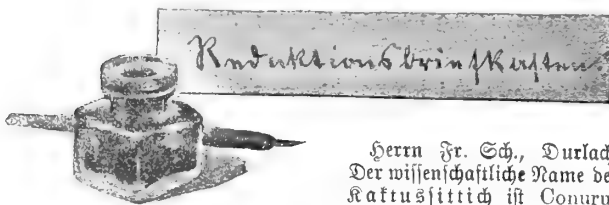 Redaktionsbriefkasten
Herrn Fr. Sch., Durlach
Der wissenschaftliche Name de
Kaktussittich ist Conuru